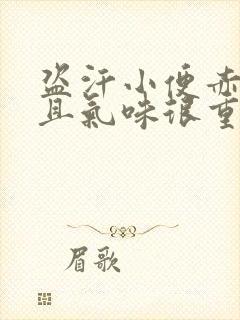 盗汗小便赤
且氣味很重
眉歌